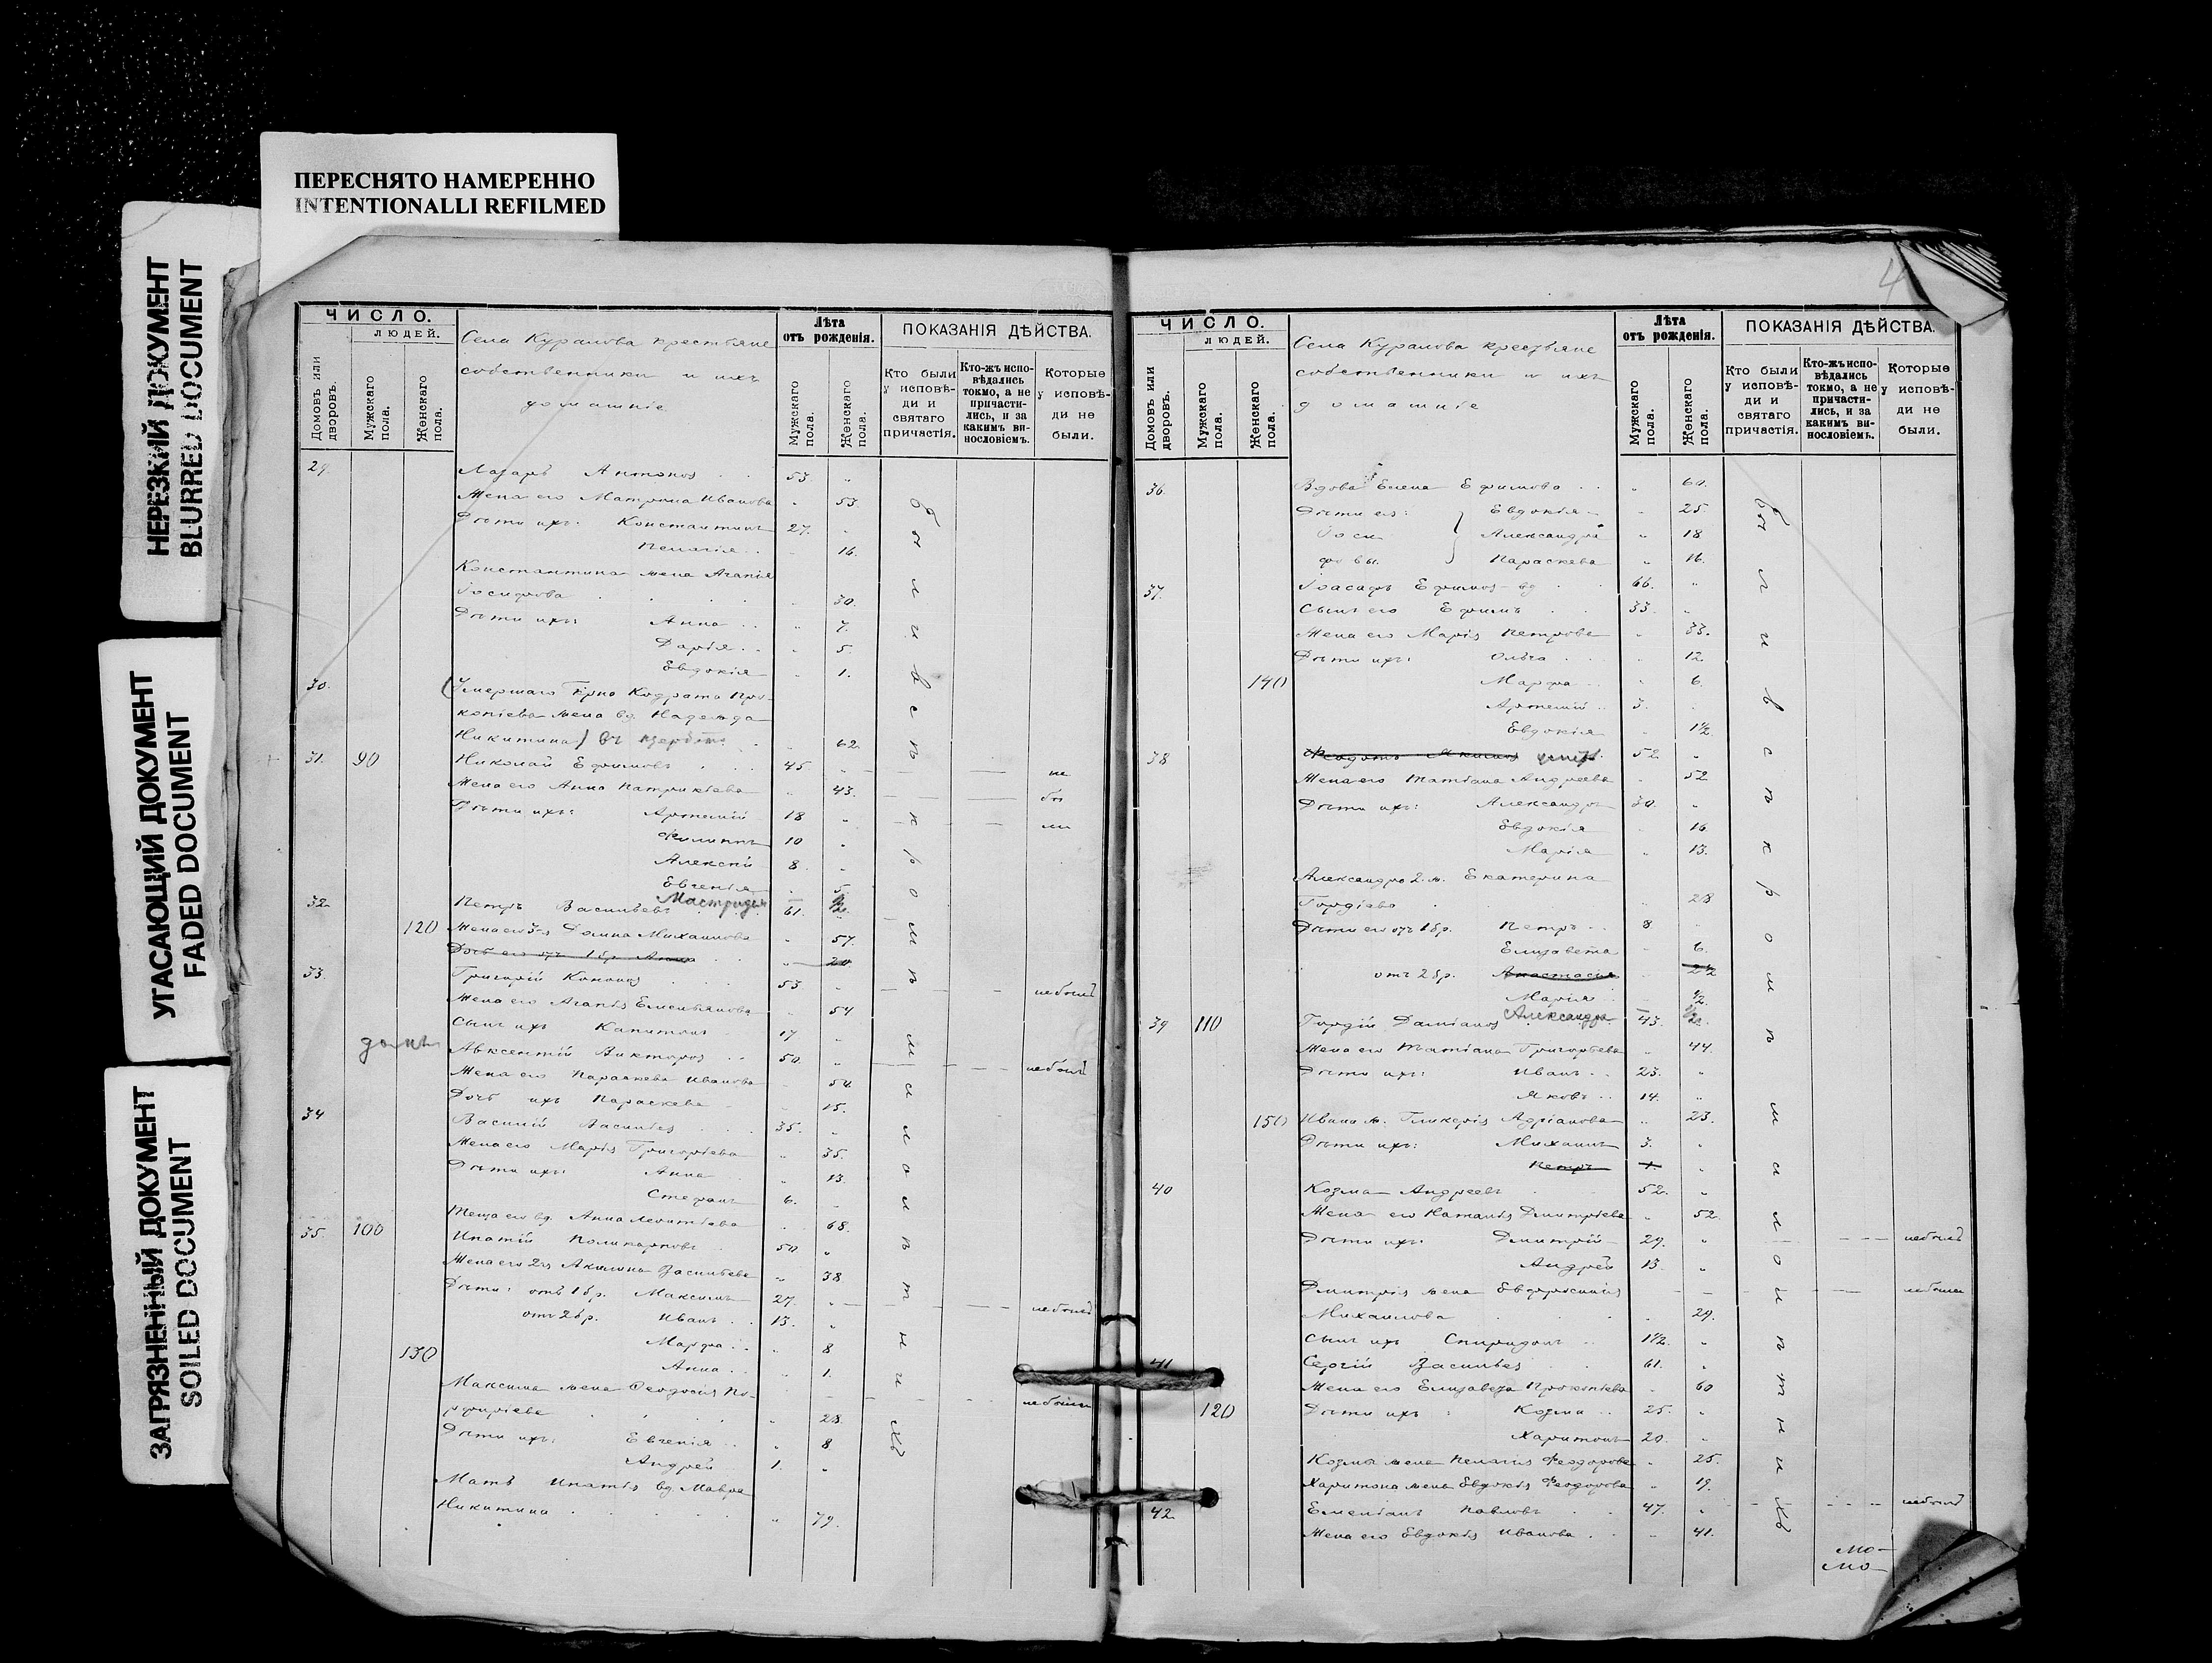 ПЕРЕСНЯТО НАМЕРЕННО
INTENTIONALLI REFILMED
НЕРЕЗКИЙ ДОКУМЕНТ
BLURRED DOCUMENT
УГАСАЮЩИЙ ДОКУМЕНТ
FADED DOCUMENT
ЗАГРЯЗНЕННЫЙ ДОКУМЕНТ
SOILED DOCUMENT
ЧИСЛО.
ЛЮДЕЙ.
Домовъ или дворовъ.
Мужскаго пола.
Женскаго пола.
Села Куралова крестьяне
собственники и ихъ
домашніе
Лѣта
отъ рожденія.
Мужскаго пола.
Женскаго пола.
ПОКАЗАНІЯ ДѢЙСТВА.
Кто были
у исповѣ-
ди и
святаго
причастія.
Кто-жъ испо-
вѣдались
токмо, а не
причасти-
лись, и за
какимъ ви-
нословіемъ.
Которые
у исповѣ-
ди не
были.
29. Лазарь Антонов 53 "
Жена его Матрона Иванова " 53
Дѣти ихъ: Константинъ 27. "
Пелагія " 16.
Константина жена Агапія
Іосифова " 30.
Дѣти ихъ: Анна " 7.
Дарія " 5.
Евдокія " 1.
30. (Умершаго Кодрата Про-
копіева жена вд. Надежда
Никитина) " 62.
31. 90 Николай Ефимовъ 45 " не
Жена его Анна Патрикіева " 43. бы
Дѣти ихъ: Артемій 18 " ли
Филиппъ 10 "
Алексѣй 8. "
Евгенія " 5.
32. Петръ Васильевъ 61.
120 Жена его 3-я Домна Михаилова " 57.
Дочь его отъ 1 бр. Анна " 20
33. Григорій Кононов 53 " не былъ
Жена его Агапія Емельянова " 54
Сынъ ихъ Капитонъ 17 "
Авксентій Викторов 50. " не былъ
Жена его Параскева Иванова " 50.
Дочь ихъ Параскева " 15.
34 Василій Васильев 35. "
Жена его Марія Григорьева " 35.
Дѣти ихъ: Анна " 13
Стефанъ 6. "
Теща его вд. Анна Леонтіева " 68.
35 100 Ипатій Поликарповъ 50 "
Жена его 2-я Акилина Васильева " 38
Дѣти: отъ 1 бр. Максимъ 27. " не былъ
отъ 2 бр. Иванъ 13. "
Марфа " 8
130 Анна " 1.
Максима жена Феодосія По-
рфиріева " 28. не была
Дѣти ихъ: Евгенія " 8
Андрей 1. "
Мать Ипатія вд. Мавра
Никитина " 79.
были всѣ кромѣ малолѣтнихъ
4
ЧИСЛО.
ЛЮДЕЙ.
Домовъ или дворовъ.
Мужскаго пола.
Женскаго пола.
Села Куралова крестьяне
собственники и ихъ
домашніе
Лѣта
отъ рожденія.
Мужскаго пола.
Женскаго пола.
ПОКАЗАНІЯ ДѢЙСТВА.
Кто были
у исповѣ-
ди и
святаго
причастія.
Кто-жъ испо-
вѣдались
токмо, а не
причасти-
лись, и за
какимъ ви-
нословіемъ.
Которые
у исповѣ-
ди не
были.
36. Вдова Елена Ефимова " 60.
Дѣти ея: Евдокія " 25
Іоси Александра " 18
фовы. Параскева " 16.
37. Іоасафъ Ефимов вд. 66. "
Сынъ его Ефимъ 33. "
Жена его Марія Петрова " 33.
Дѣти ихъ: Ольга " 12.
140 Марфа " 6.
Артемій 3.
Евдокія " 1½
38 52 "
Жена его Татіана Андреева " 52
Дѣти ихъ: Александръ 30. "
Евдокія " 16.
Марія " 13.
Александра 2 ж. Екатерина
Гордіева " 28
Дѣти его отъ 1 бр. Петръ 8 "
Елизавета " 6.
отъ 2 бр. Анастасія 2½
Марія ½
Александра
39 110 Гордій Даміанов 43.
Жена его Татіана Григорьева " 44.
Дѣти ихъ: Иванъ 23. "
Яковъ 14. "
150 Ивана ж. Гликерія Адріанова " 23.
Дѣти ихъ: Михаилъ 3. "
Петръ 1. "
40 Козма Андреевъ 52. "
Жена его Наталія Дмитріева " 52
Дѣти ихъ: Дмитрій 29. " не былъ
Андрей 13. "
Дмитрія жена Евфросинія не была
Михаилова 29.
Сынъ ихъ Спиридонъ 1½. "
41 Сергій Васильев 61. "
Жена его Елизавета Прокопіева " 60
120 Дѣти ихъ: Козма 25. "
Харитонъ 20. "
Козмы жена Пелагія Феодорова " 25.
Харитона жена Евдокія Феодорова " 19.
42. Емеліанъ Павловъ 47. " не былъ
Жена его Евдокія Иванова " 41.
были всѣ кромѣ малолѣтнихъ